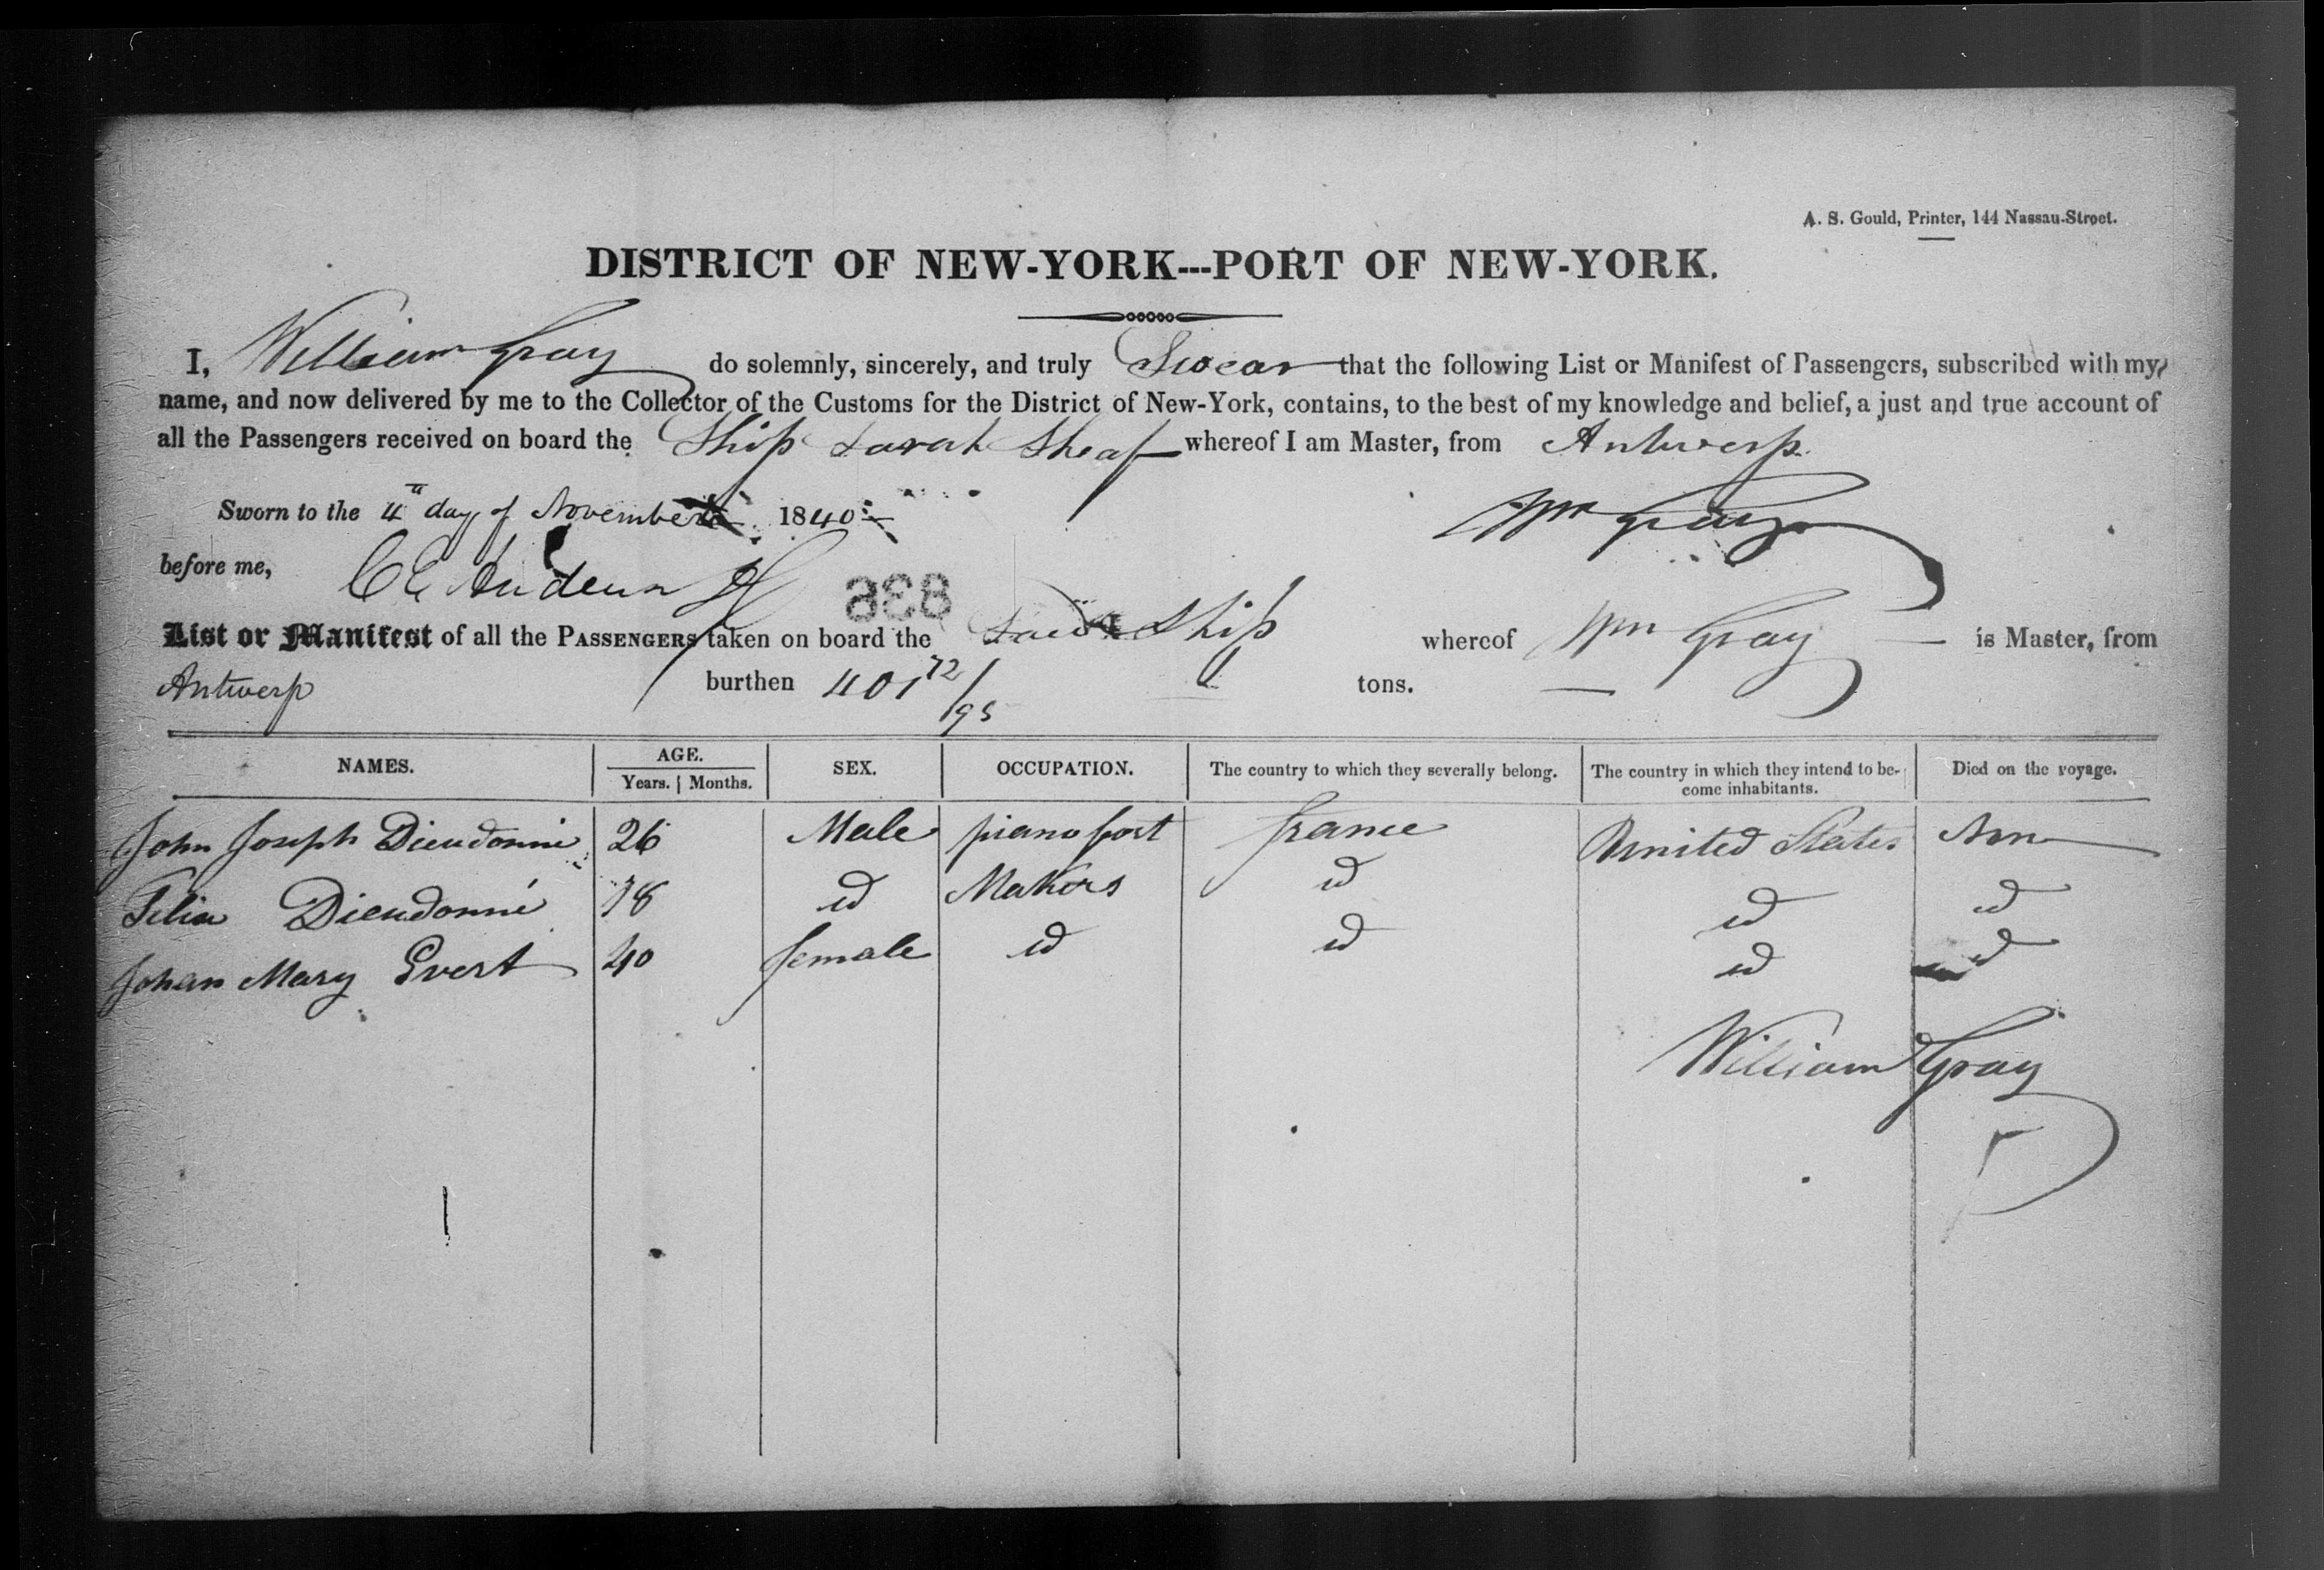 A. S. Gould, Printer, 144 Nassau-Street.
DISTRICT OF NEW-YORK---PORT OF NEW-YORK.
I, William Gray do solemnly, sincerely, and truly Swear that the following List or Manifest of Passengers, subscribed with my
name, and now delivered by me to the Collector of the Customs for the District of New-York, contains, to the best of my knowledge and belief, a just and true account of
all the Passengers received on board the Ship Sarah Sheaf whereof I am Master, from Antwerp.
Sworn to the 4th day of November 1840
Wm Gray
before me,
838
List or Manifest of all the PASSENGERS taken on board the Said Ship whereof Wm Gray is Master, from
Antwerp burthen 401 72/95 tons.
NAMES. AGE. SEX. OCCUPATION. The country to which they severally belong. The country in which they intend to be- Died on the voyage.
Years. Months. come inhabitants.
John Joseph Dieudonné 26 Male piano fort france United States Non
Dieudonné 18 id Makers id id id
Johan Mary Evert 40 female id id id id
William Gray